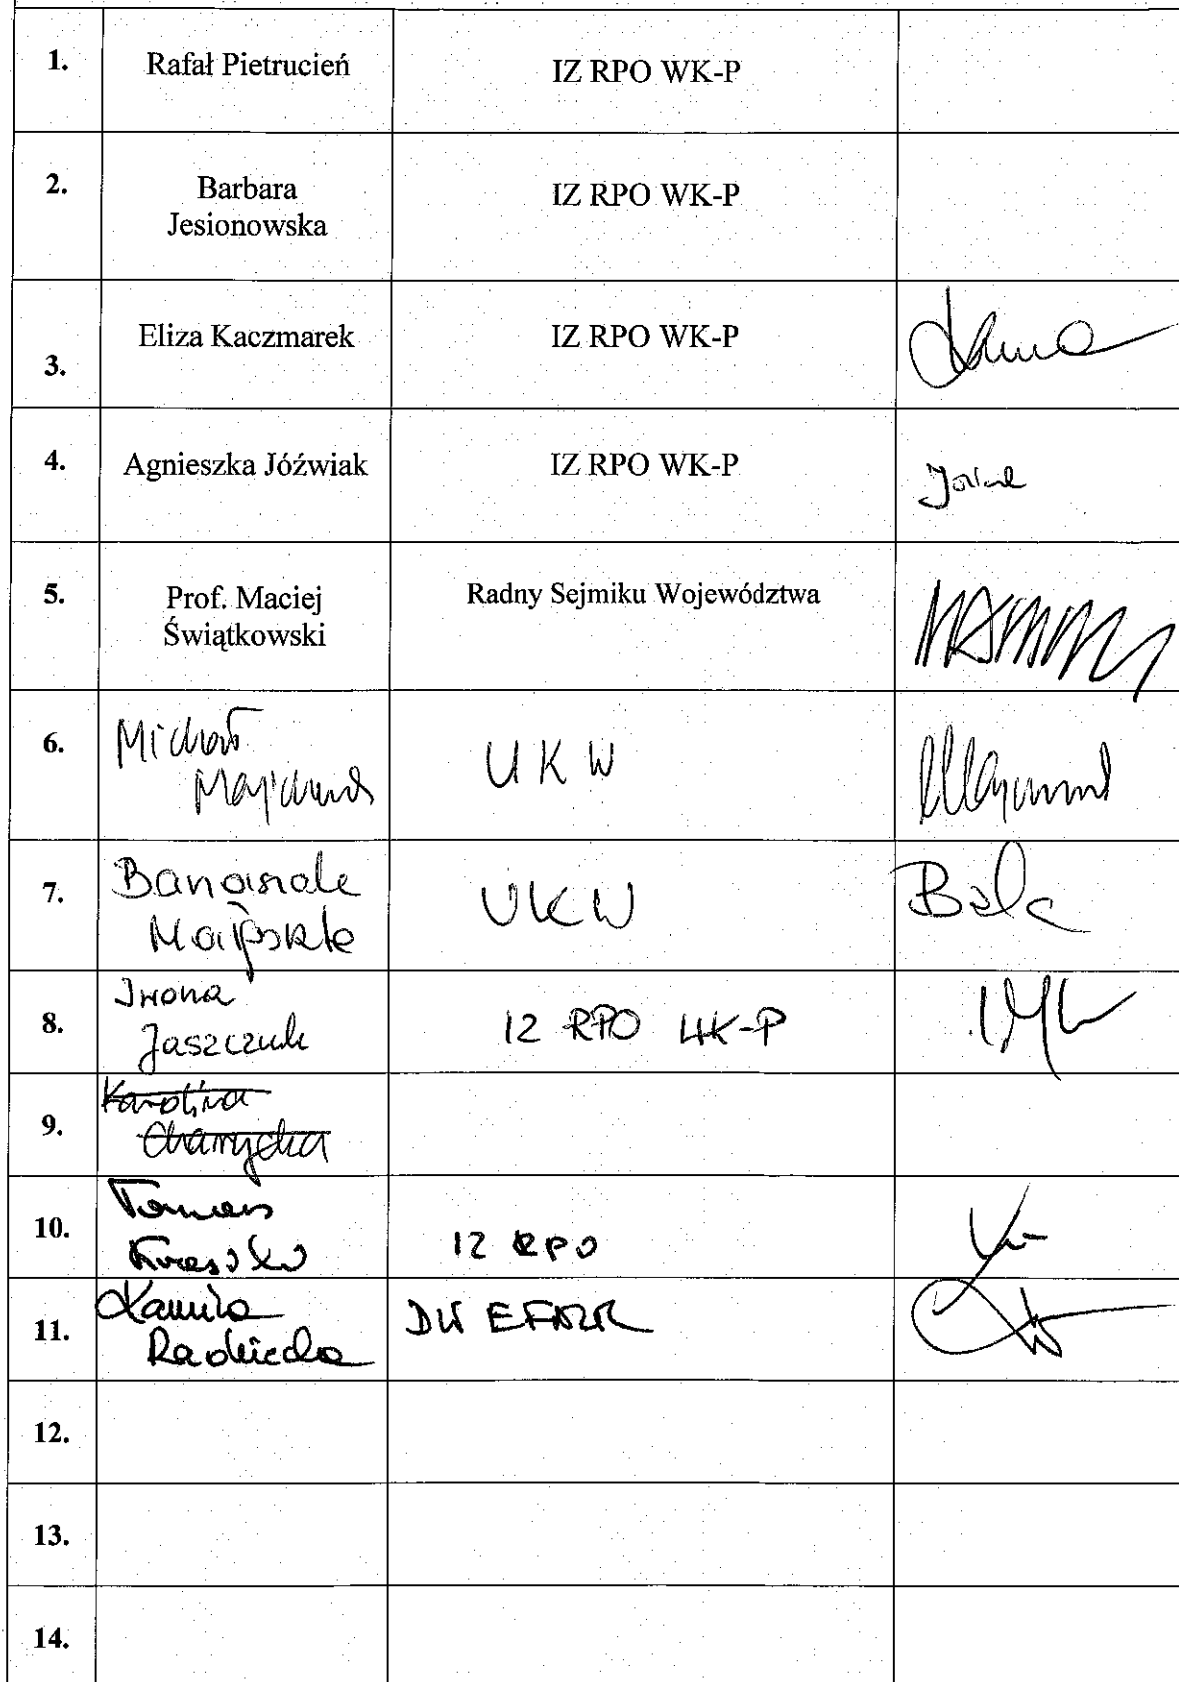 1. Rafał Pietrucień IZ RPO WK-P
2. Barbara Jesionowska IZ RPO WK-P
3. Eliza Kaczmarek IZ RPO WK-P
4. Agnieszka Jóźwiak IZ RPO WK-P
5. Prof. Maciej Świątkowski Radny Sejmiku Województwa
6. Michał UKW
7. UKW
8. Iwona Jaszczuk IZ RPO WK-P
9. Karolina
10. Tomasz IZ RPO
11. Kamila Radwiecka
12.
13.
14.